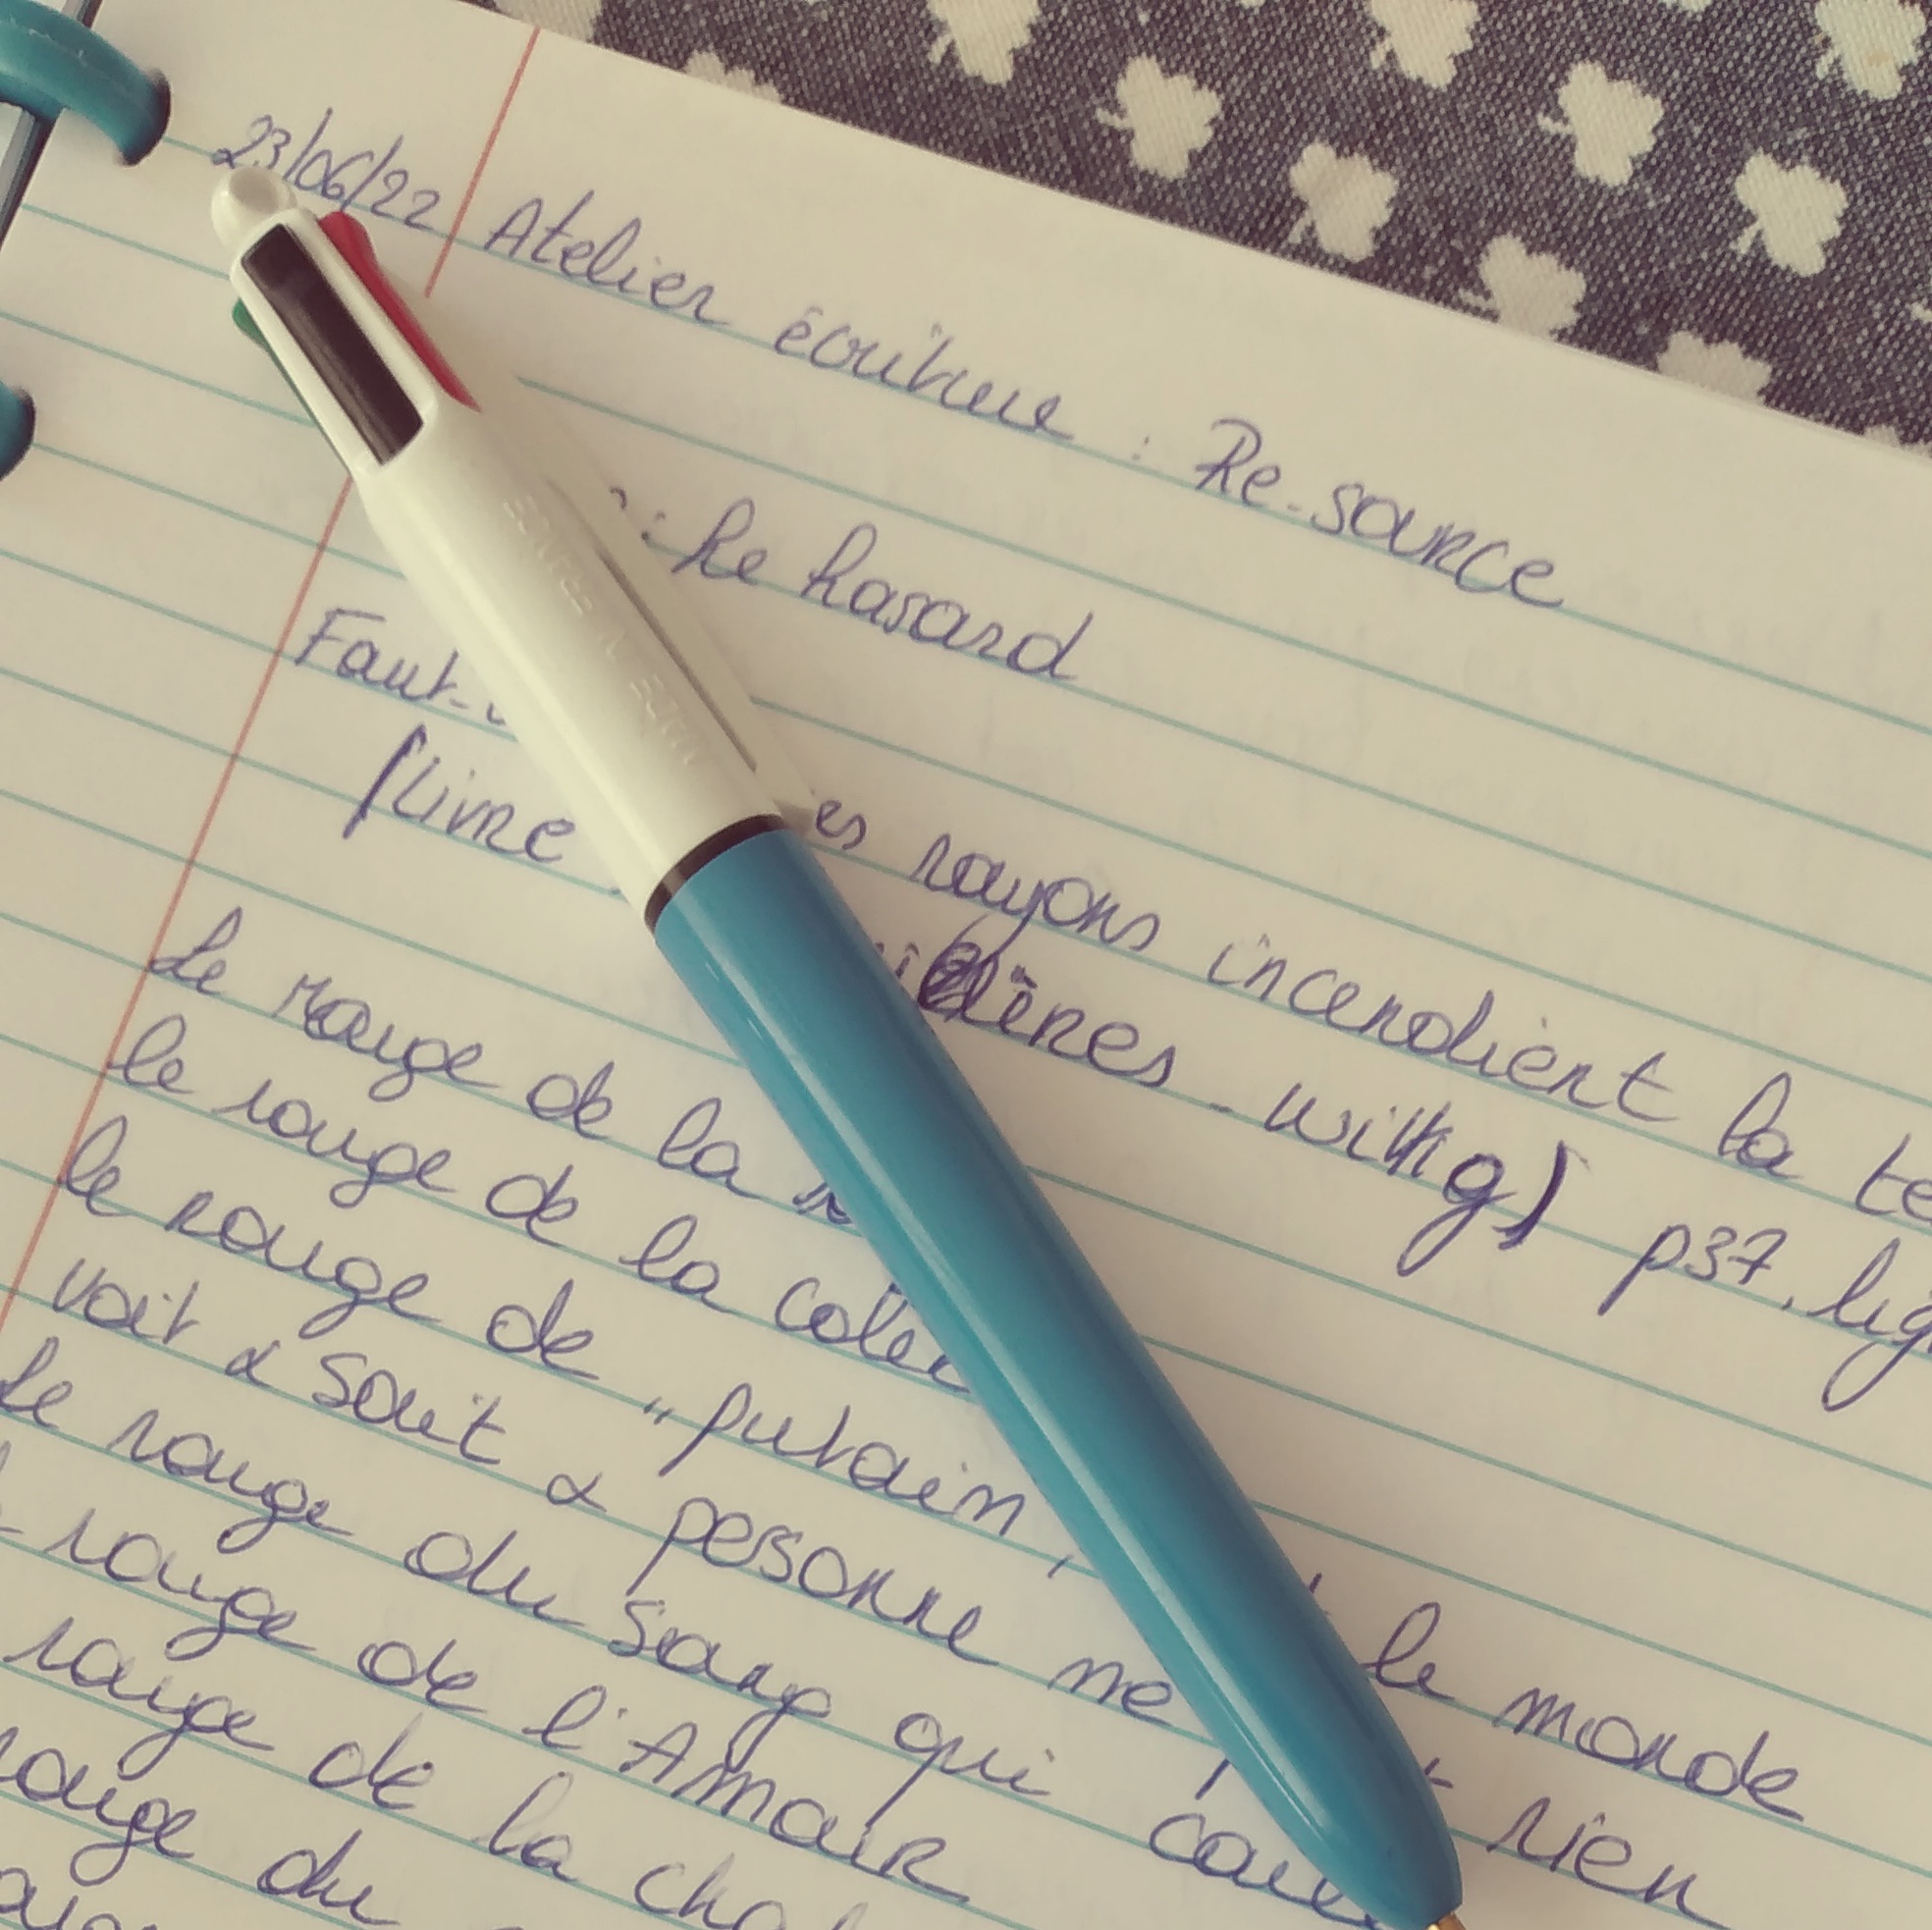 23/06/22 Atelier écriture : Re-source
: le hasard
Faut- es rayons incendient la te
(livre wittig) p37, lig
Le rouge de la
le rouge de la colèr
le rouge de "putain, le monde
voit & sait & personne ne rien
Le rouge du sang qui coul
rouge de l'Amour
rouge de la cha
rouge du
MADE IN FRANCE